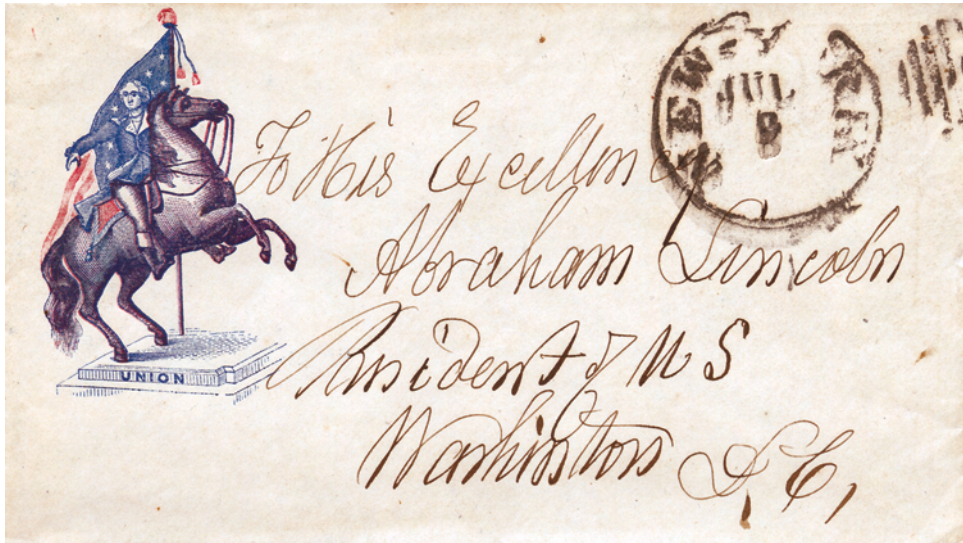 NEW YORK
JUL
8
To His Excellency
Abraham Lincoln
President of U S
Washington D, C,
UNION